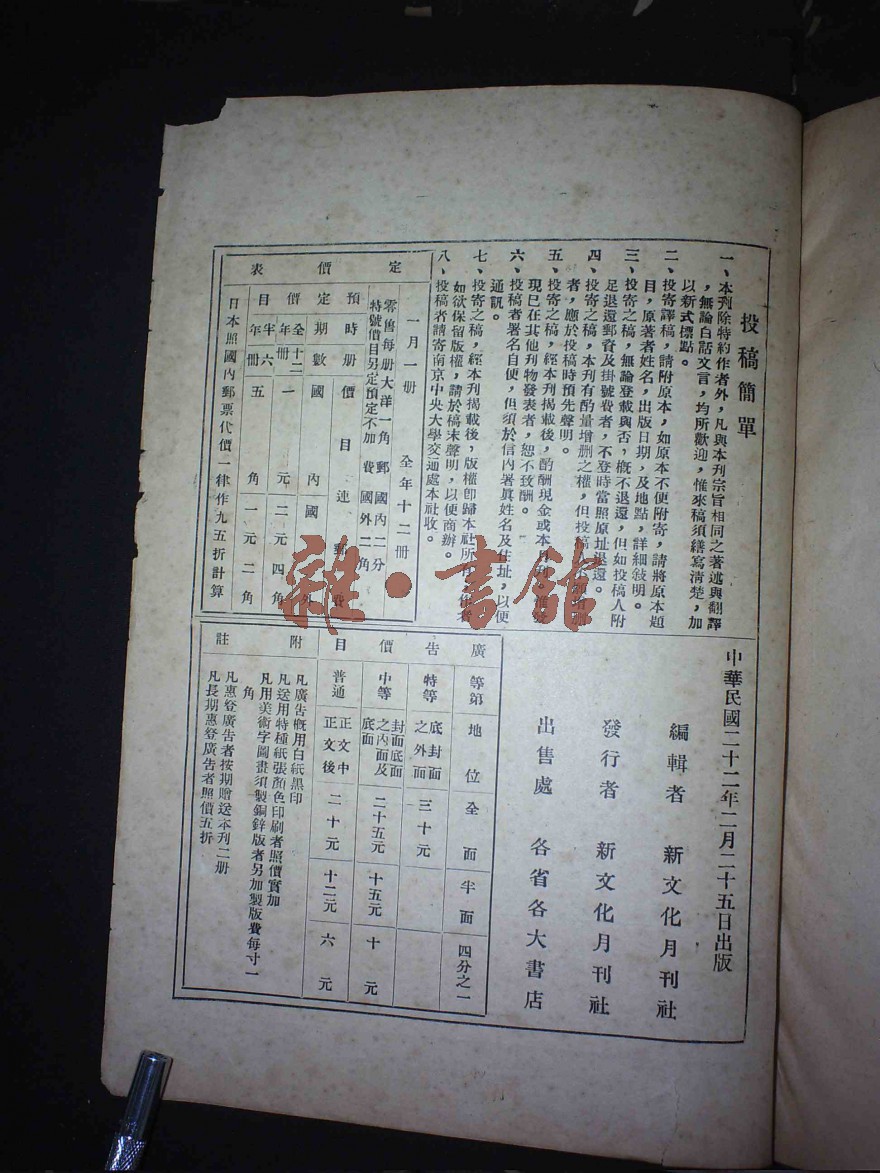 投稿簡單
一、本刊除特約作者外，凡與本刊宗旨相同之著述與翻譯
，無論白話文言，均所歡迎，惟來稿須繕寫清楚，加
以新式標點。
二、投寄譯稿，請附原本，如原本不便附寄，請將原本題
目，原著者姓名，出版日期，及地點，詳細敍明。
三、投寄之稿，無論登載與否，槪不退還，但如投稿人附
足退還郵資及掛號費者，不登時當照原址退還。
四、投寄之稿，本刊有酌量增删之權，但投稿人
者，應於投稿時預先聲明。
五、投寄之稿，經本刊揭載後，酌酬現金或本
現已在其他刊物發表者，恕不致酬。
六、投稿者署名自便，但須於信內署眞姓名及住址，以便
通訊。
七、投寄之稿，經本刊揭載後，版權卽歸本社所
如欲保留版權，請於稿末聲明，以便商辦。
八、投稿者請寄南京中央大學交通處本社收。
定價表
一月一册 全年十二册
零售每册大洋一角 郵費 國內二分 國外二角
特號價目另定預定不加
預定價目
時期 册數 價目連郵費
國內 國外
全年 十二册 一元 二元四角
半年 六册 五角 一元二角
日本照國內郵票代價一律作九五折計算
中華民國二十二年二月二十五日出版
編輯者 新文化月刊社
發行者 新文化月刊社
出售處 各省各大書店
廣告價目
等第 地位 全面 半面 四分之一
特等 底封面之外面 三十元
中等 封面底面之內面及底面 二十五元 十五元 十元
普通 正文中正文後 二十元 十二元 六元
附註
凡廣告槪用白紙黑印
凡送用特種紙張顏色印刷者照價實加
凡用美術字圖畫須製銅鋅版者另加製版費每寸一
角
凡惠登廣告者按期贈送本刊二册
凡長期惠登廣告者照價五折
雜·書館